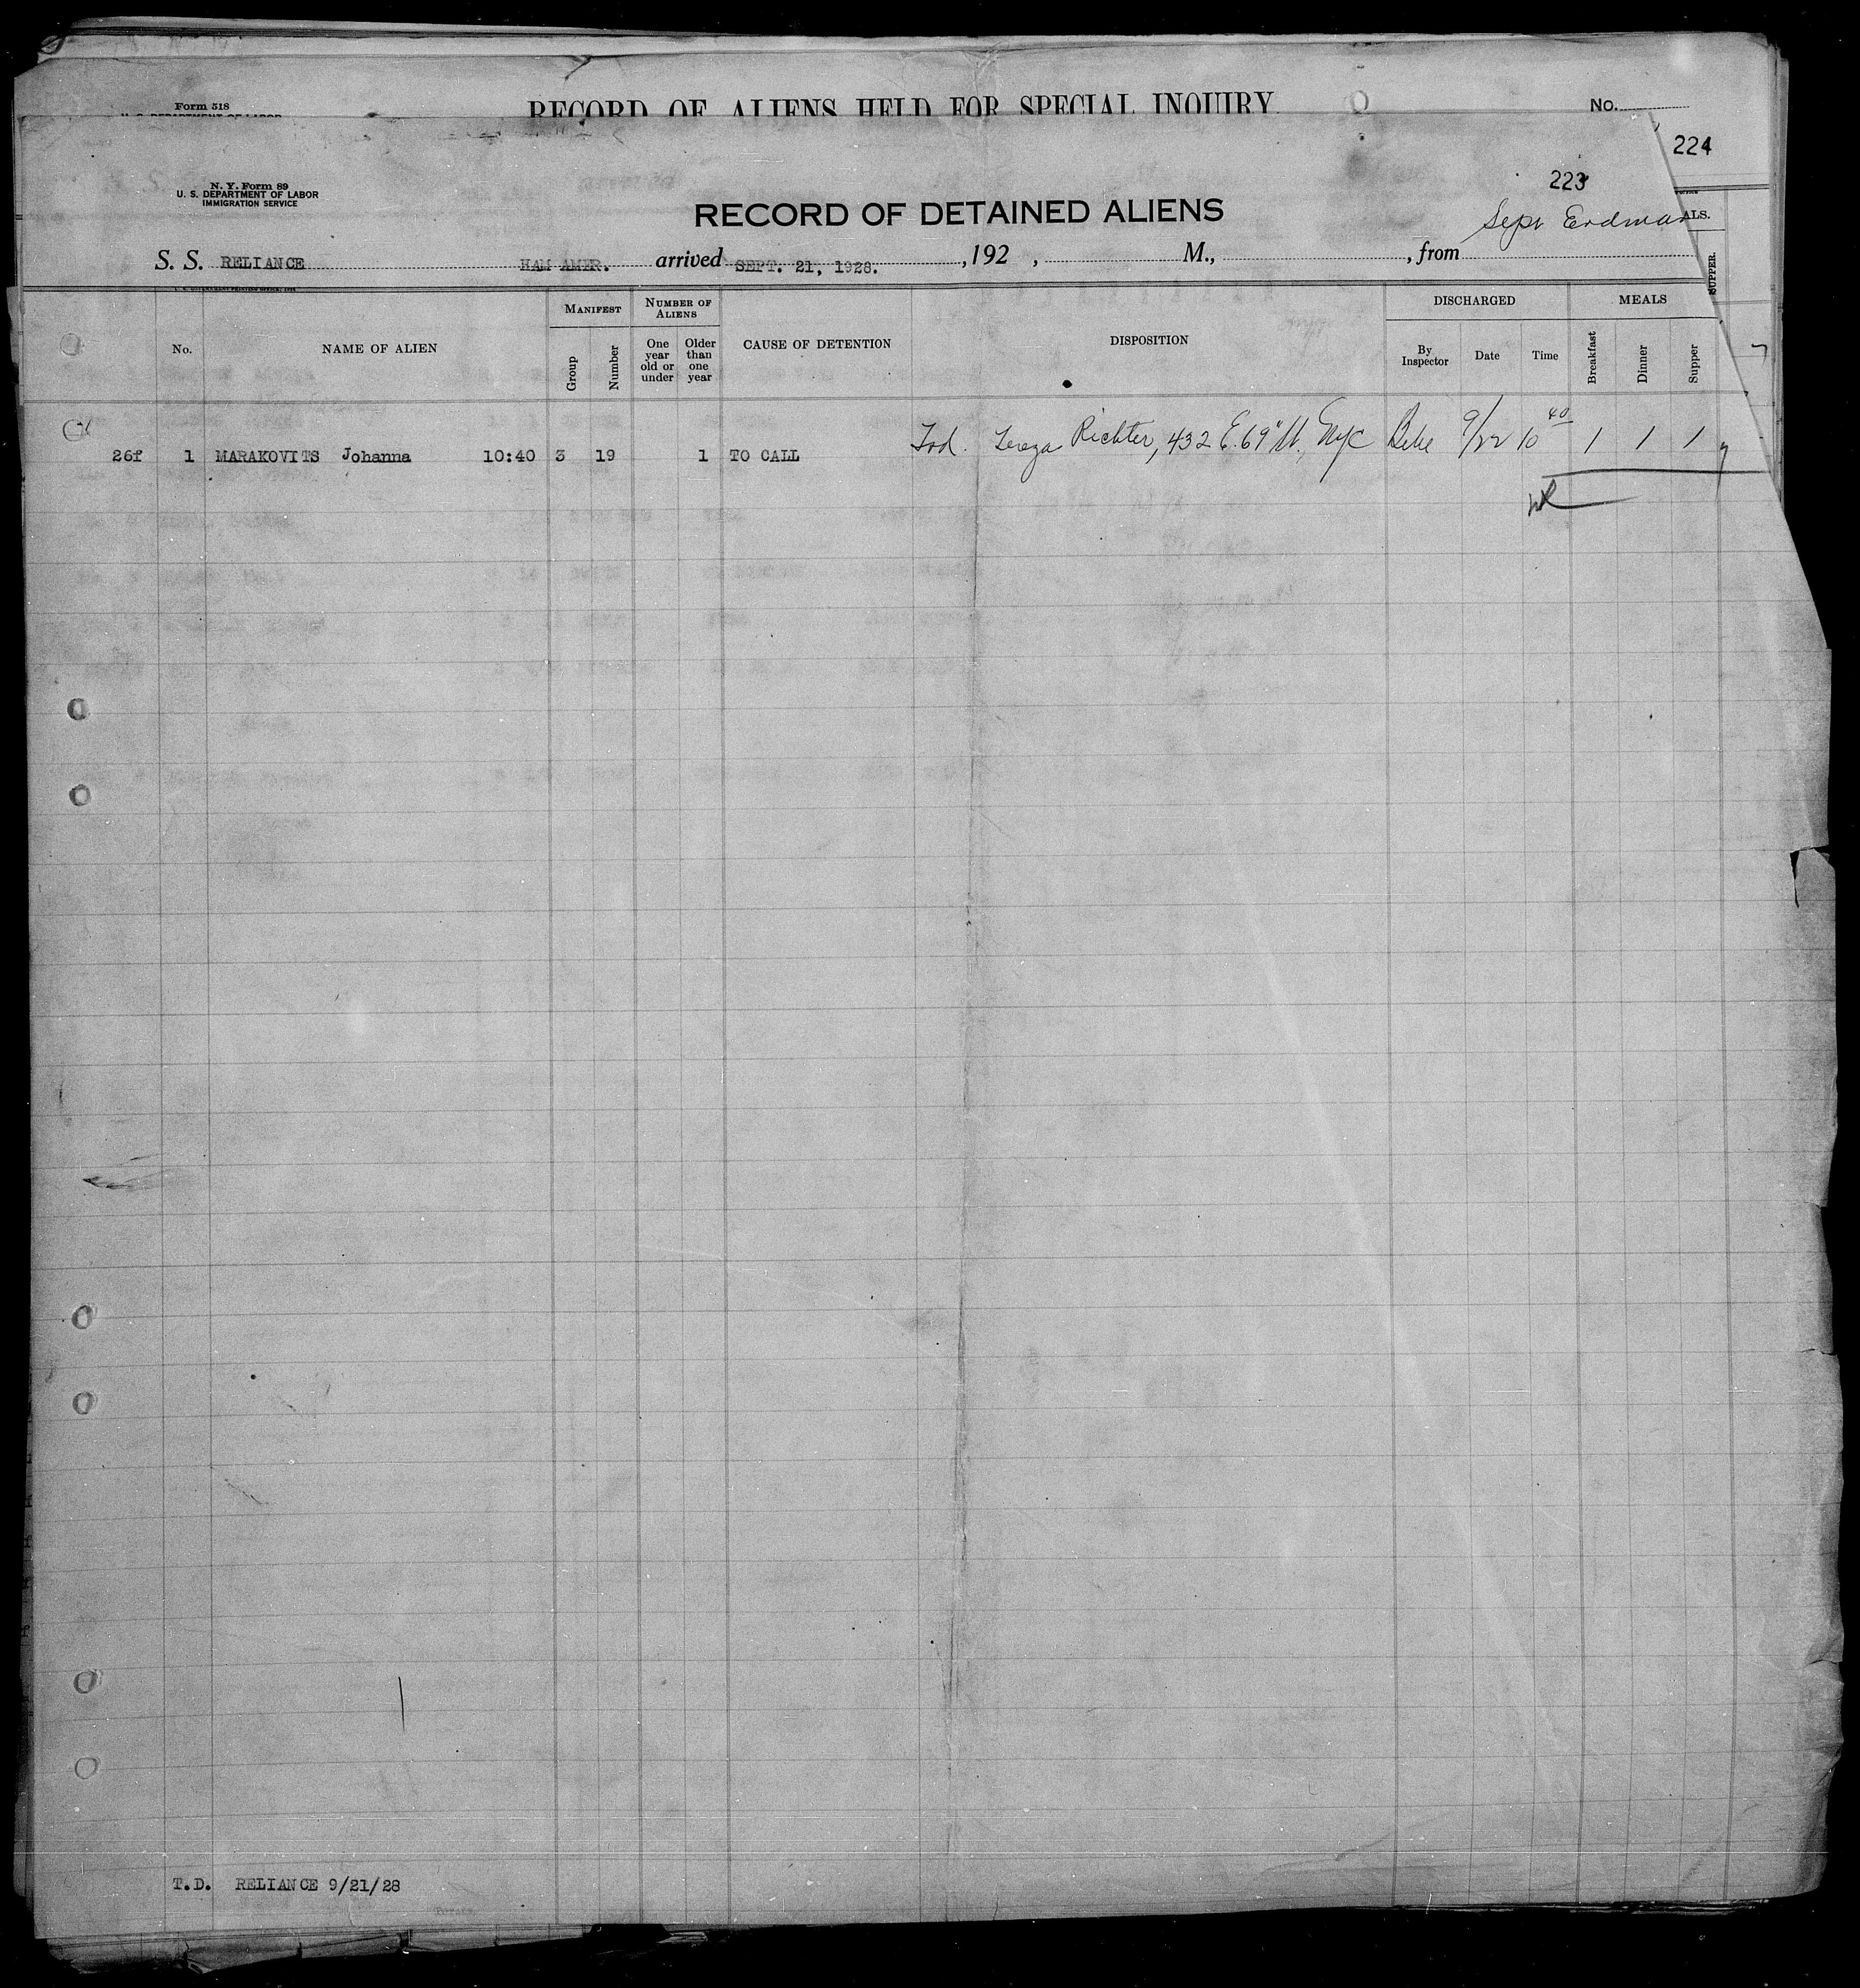 Form 518
RECORD OF ALIENS HELD FOR SPECIAL INQUIRY
No.
224
223
N. Y. Form 89
U. S. DEPARTMENT OF LABOR
IMMIGRATION SERVICE
RECORD OF DETAINED ALIENS
ALS.
SUPPER.
S. S. RELIANCE HAM AMER. arrived SEPT. 21, 1928. , 192 , M., , from
MANIFEST NUMBER OF ALIENS DISCHARGED MEALS
No. NAME OF ALIEN Group Number One year old or under Older than one year CAUSE OF DETENTION DISPOSITION By Inspector Date Time Breakfast Dinner Supper
26f 1 MARAKOVITS Johanna 10:40 3 19 1 TO CALL Tereza Richter, 432 E. 69" St., NYC 9/22 10 40 1 1 1
T.D. RELIANCE 9/21/28